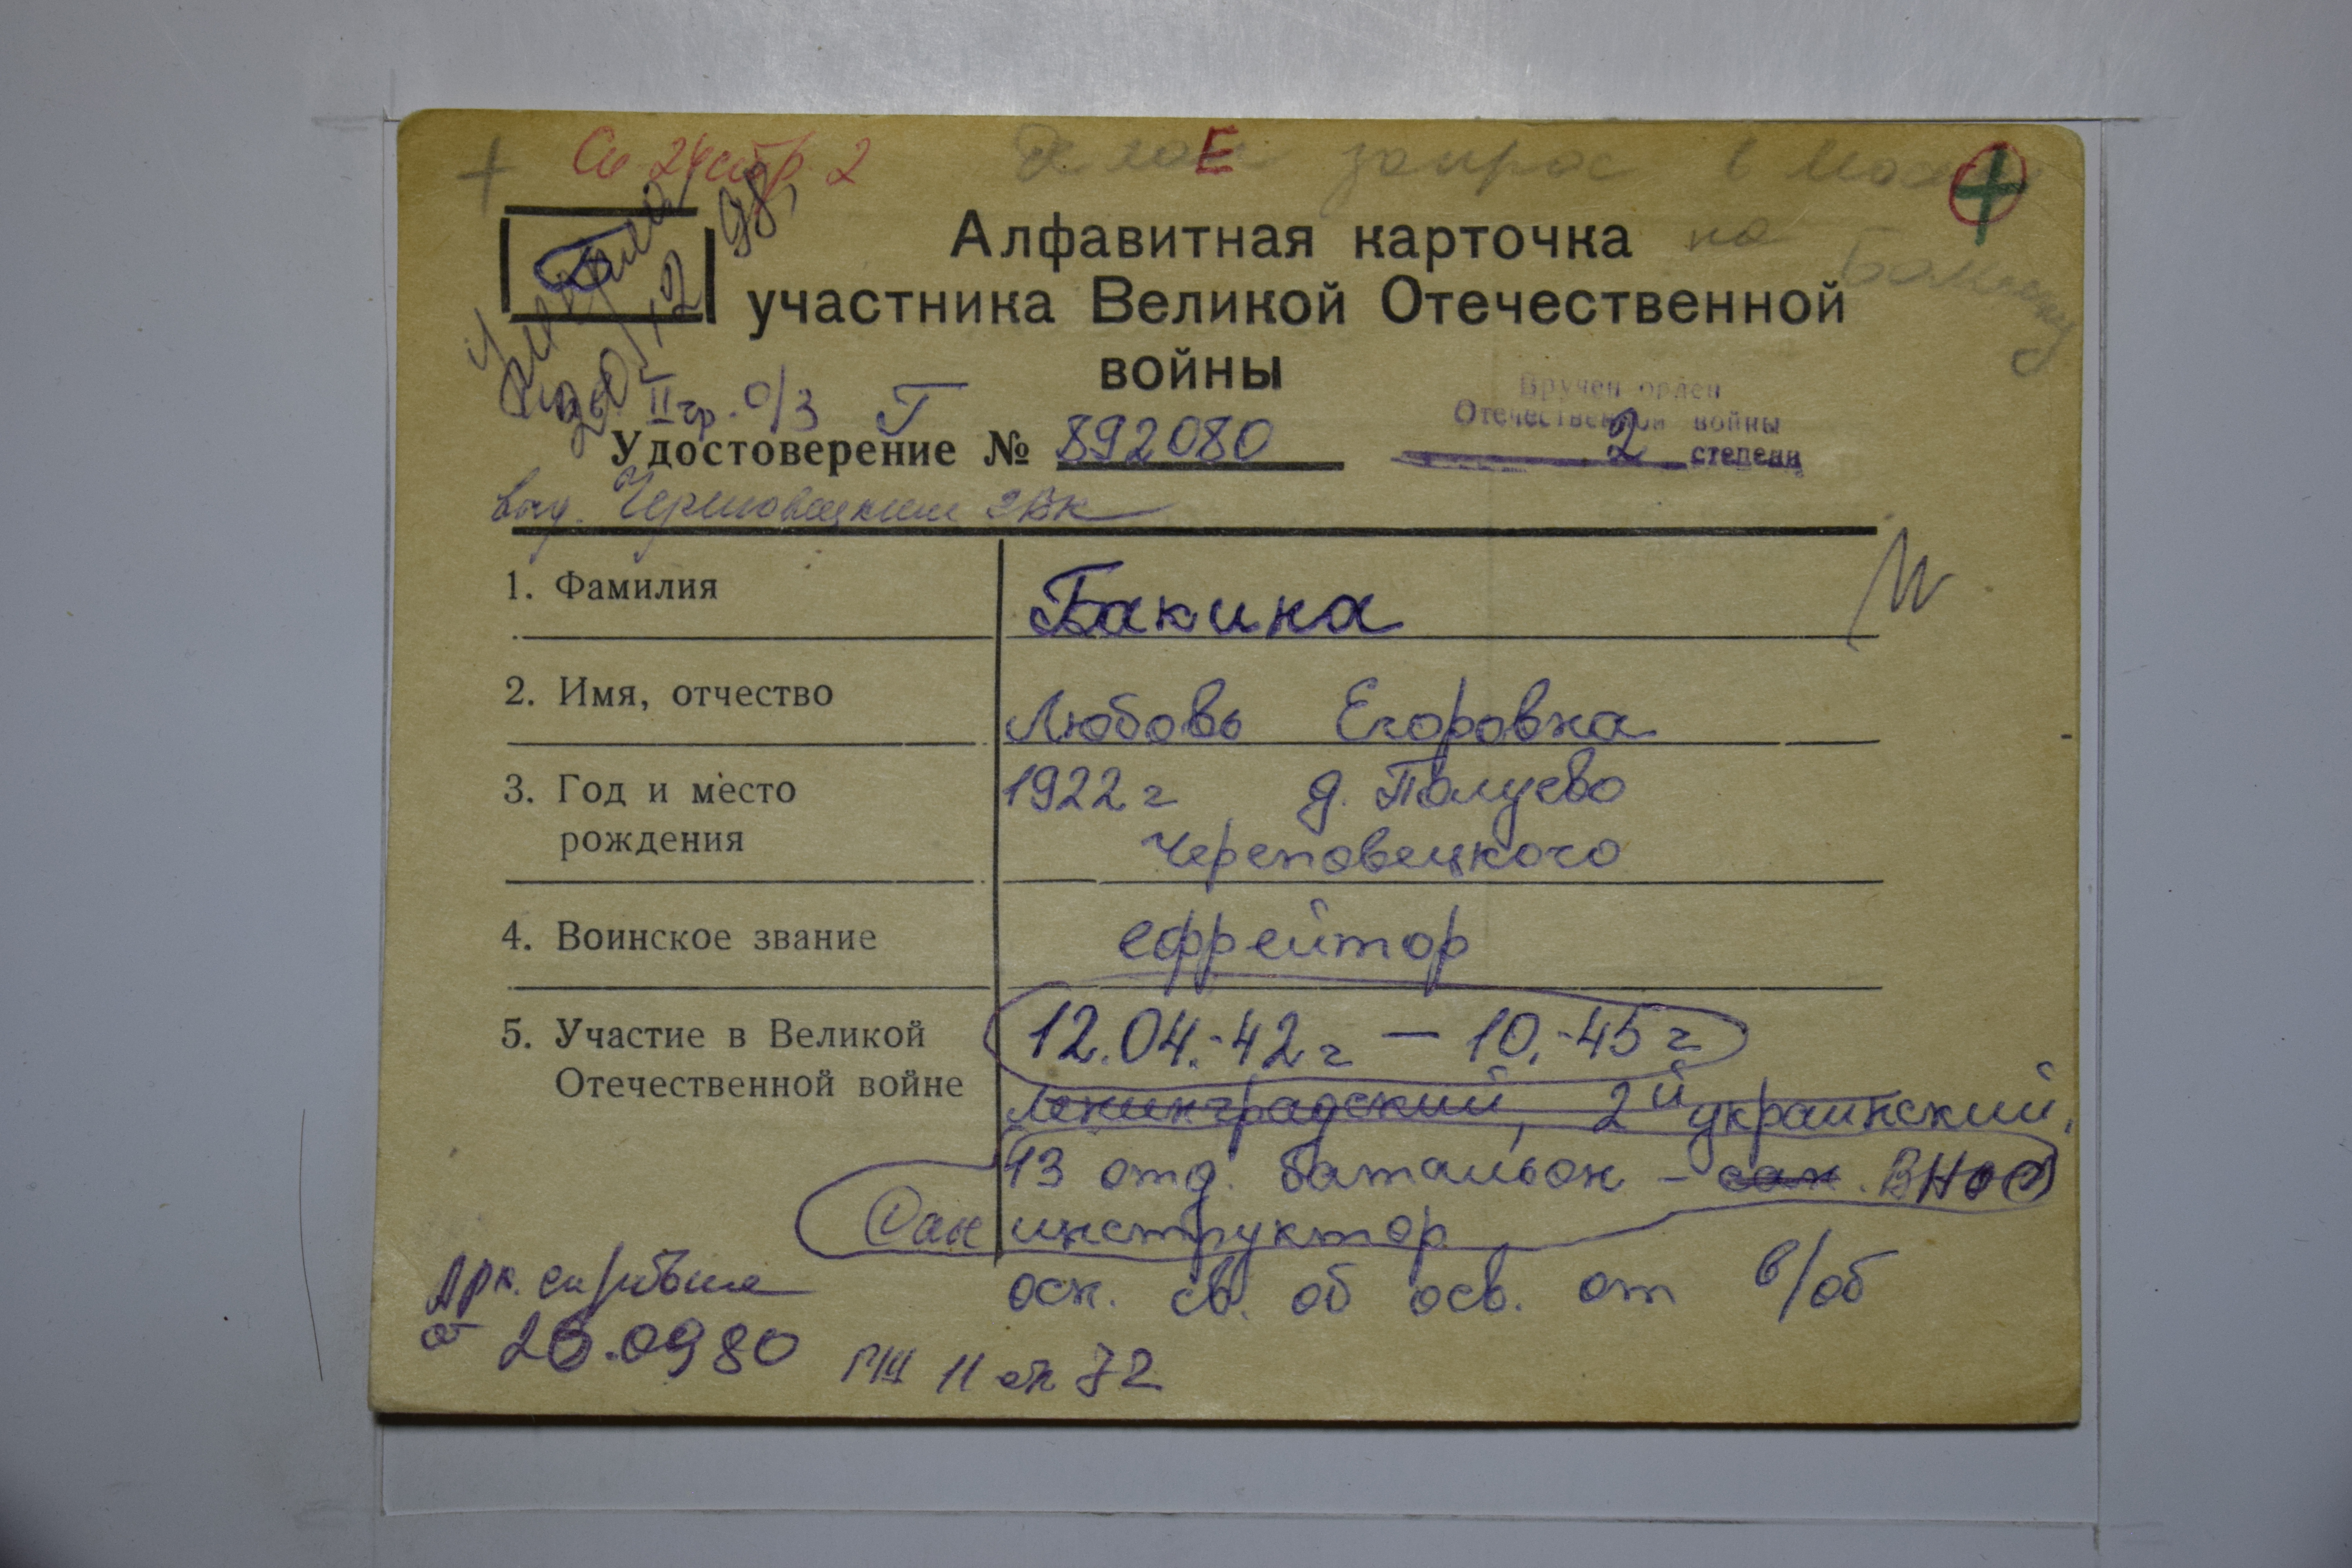 + Си 24 стр. 2
Е
запрос в
на Бакину
умерла
20/12 98
Алфавитная карточка
участника Великой Отечественной
войны
II гр. о/з Г
Вручен орден
Отечественной войны
2 степени
Удостоверение № 892080
выд. Череповецким ГВК
1. Фамилия Бакина
2. Имя, отчество Любовь Егоровна
3. Год и место 1922 г д. Полуево
рождения Череповецкого
4. Воинское звание ефрейтор
5. Участие в Великой 12.04.-42 г — 10.-45 г
Отечественной войне Ленинградский, 2й украинский,
13 отд. батальон - сан. ВНОС
Сан инструктор
осн. св. об осв. от в/об
Арх. справка
от 26.0980 ГШ 11 от 72